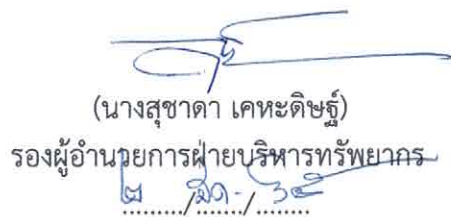 (นางสุชาดา เคหะดิษฐ์)
รองผู้อำนวยการฝ่ายบริหารทรัพยากร
๒ มิ.ค.- ๖๕
......../......./.......